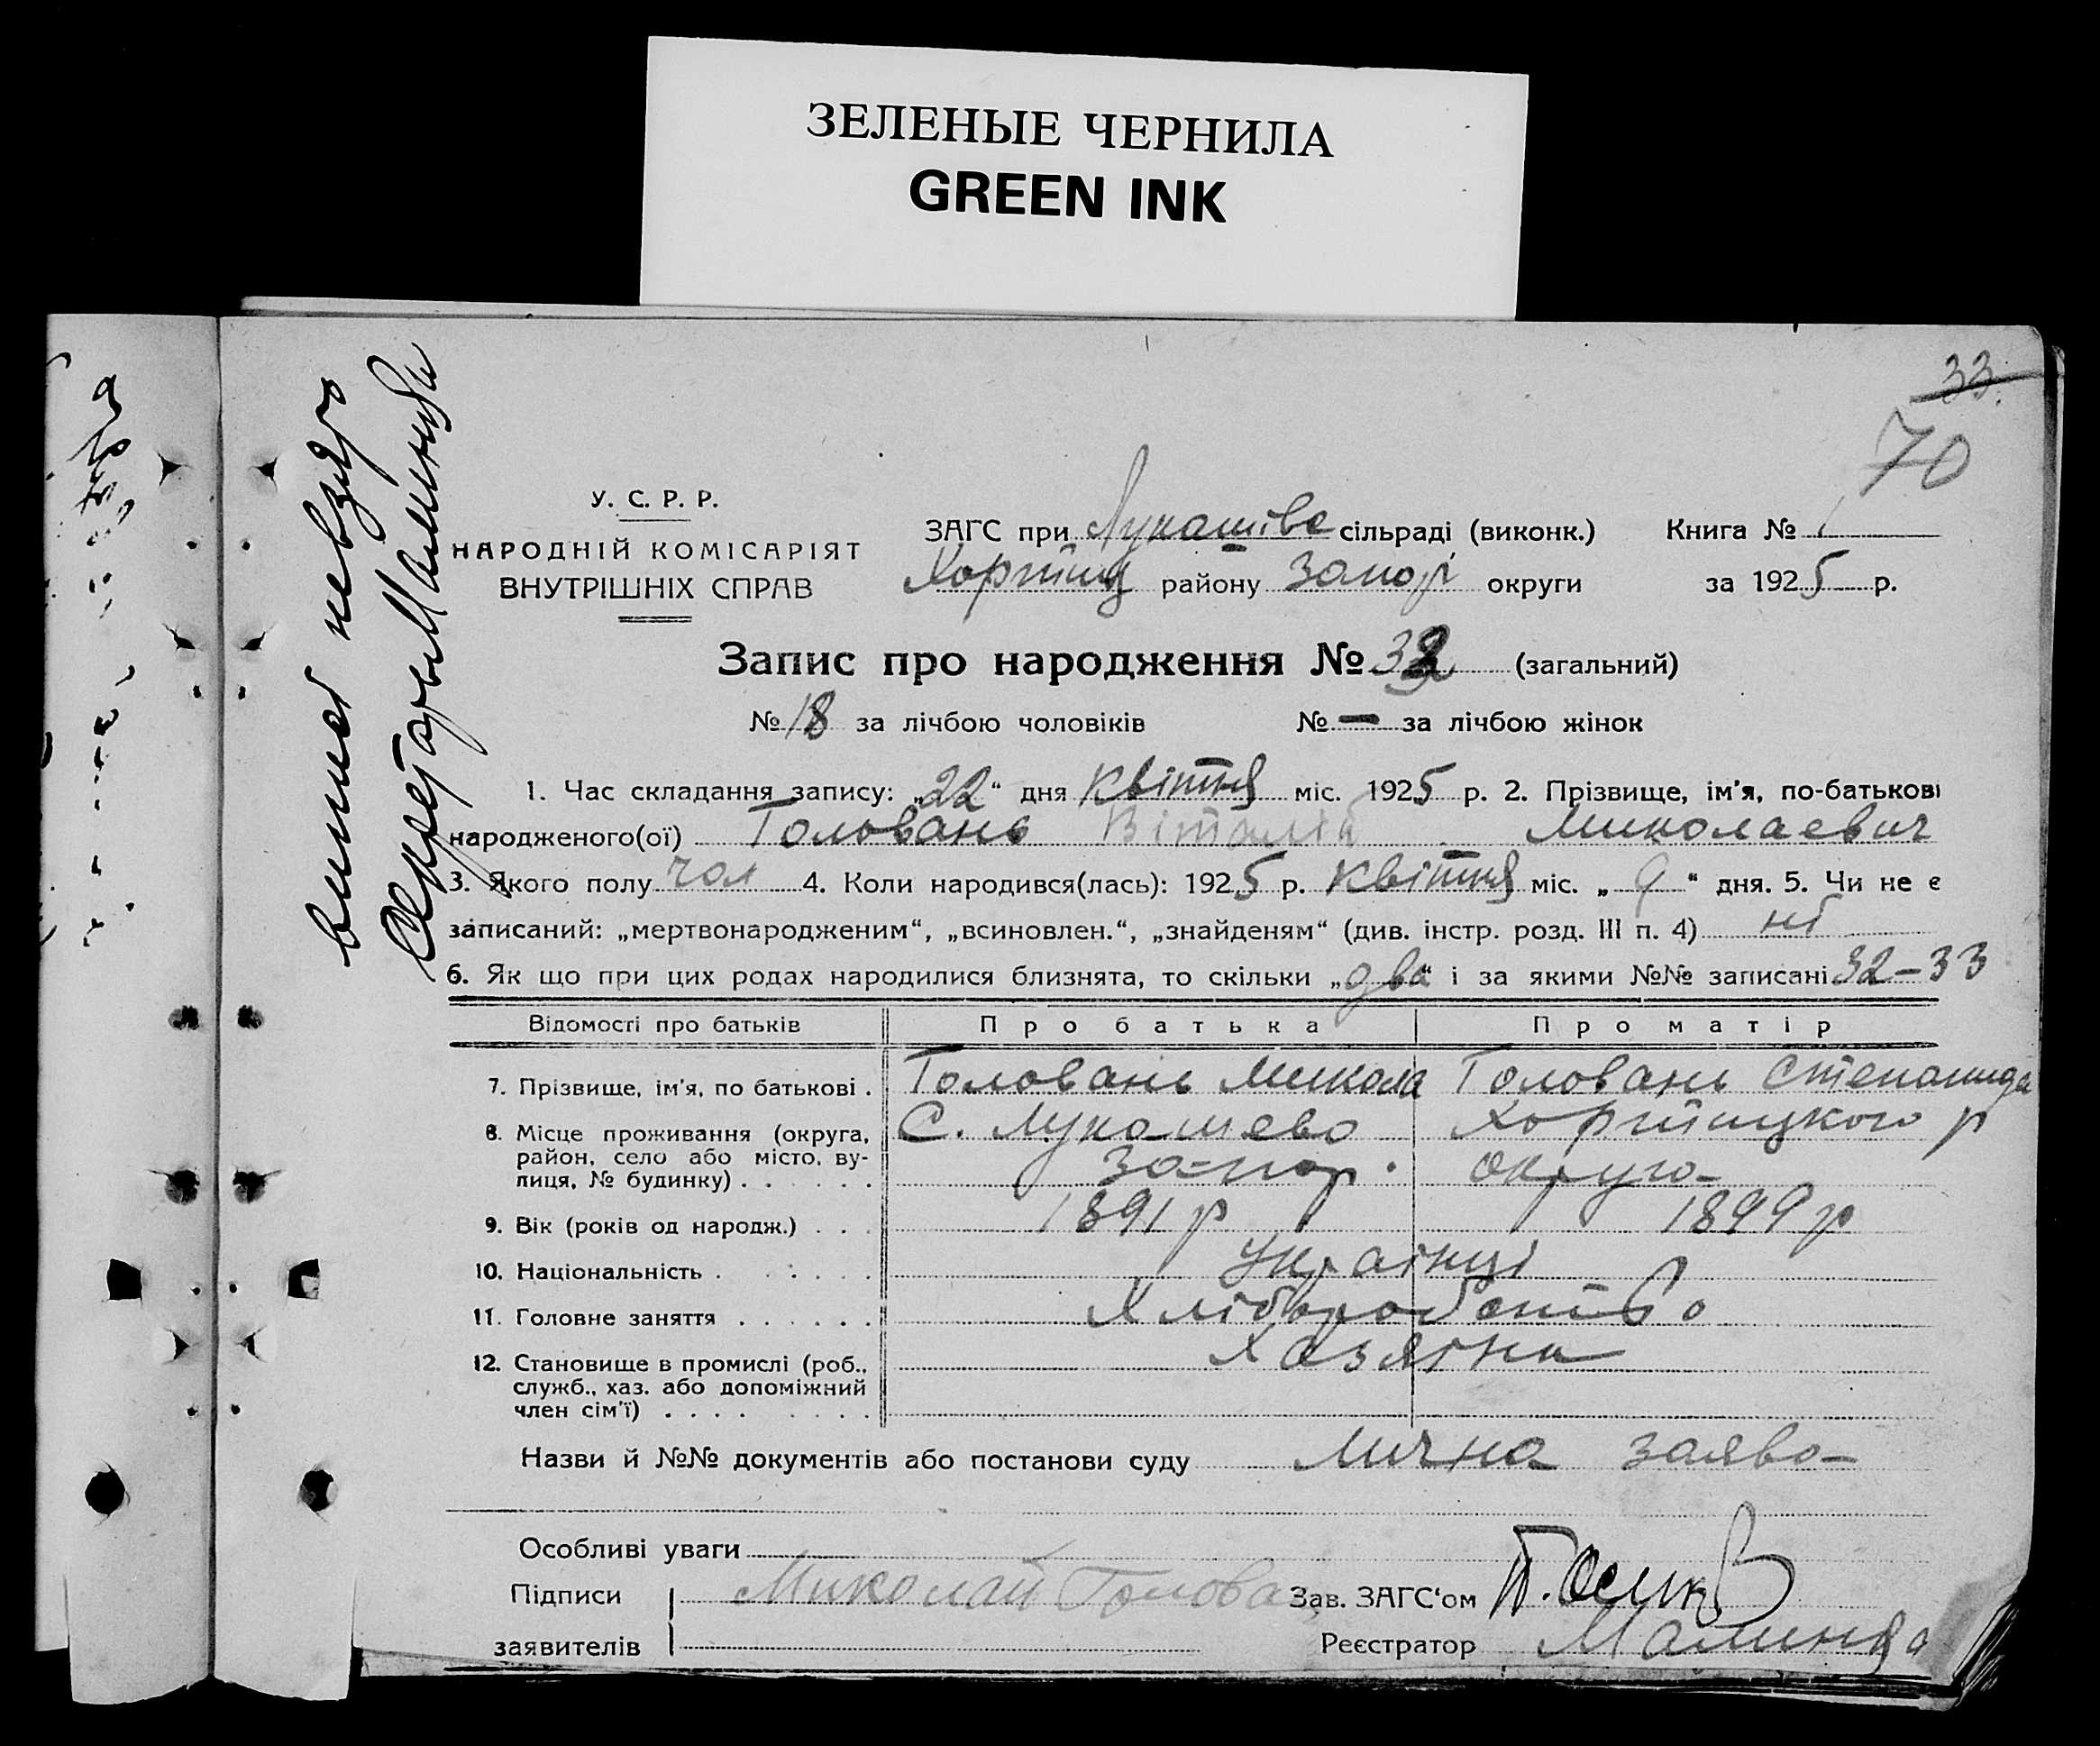 ЗЕЛЕНЫЕ ЧЕРНИЛА
GREEN INK
33
70
У. С. Р. Р.
НАРОДНІЙ КОМІСАРІЯТ
ВНУТРІШНІХ СПРАВ
ЗАГС при Лукашіво сільраді (виконк.) Книга № 1
Хортиц району Запор округи за 1925 р.
Запис про народження № 32 (загальний)
№ 18 за лічбою чоловіків № — за лічбою жінок
1. Час складання запису: „22“ дня квітня міс. 1925 р. 2. Прізвище, ім’я, по-батькові
народженого(ої) Головань Віталій Миколаевич
3. Якого полу чол 4. Коли народився(лась): 1925 р. квітня міс. „9“ дня. 5. Чи не є
записаний: „мертвонародженим“, „всиновлен.“, „знайденям“ (див. інстр. розд. III п. 4) ні
6. Як що при цих родах народилися близнята, то скільки „два“ і за якими №№ записані 32–33
Відомості про батьків Про батька Про матір
7. Прізвище, ім’я, по батькові . Головань Микола Головань Степанида
8. Місце проживання (округа, С. Лукашево Хортицкого р
район, село або місто, ву-
лиця, № будинку) . . . . . . Запор. округа
9. Вік (років од народж.) . . . 1891 р 1899 р
10. Національність . . . . . . Українці
11. Головне заняття . . . . . . Хліборобство
12. Становище в промислі (роб., Хазяїна
служб., хаз. або допоміжний
член сім’ї) . . . . . . . .
Назви й №№ документів або постанови суду Лична заява
Особливі уваги
Підписи Миколай Голова Зав. ЗАГС‘ом
заявителів Реєстратор Малинка
Секретарь Малинка